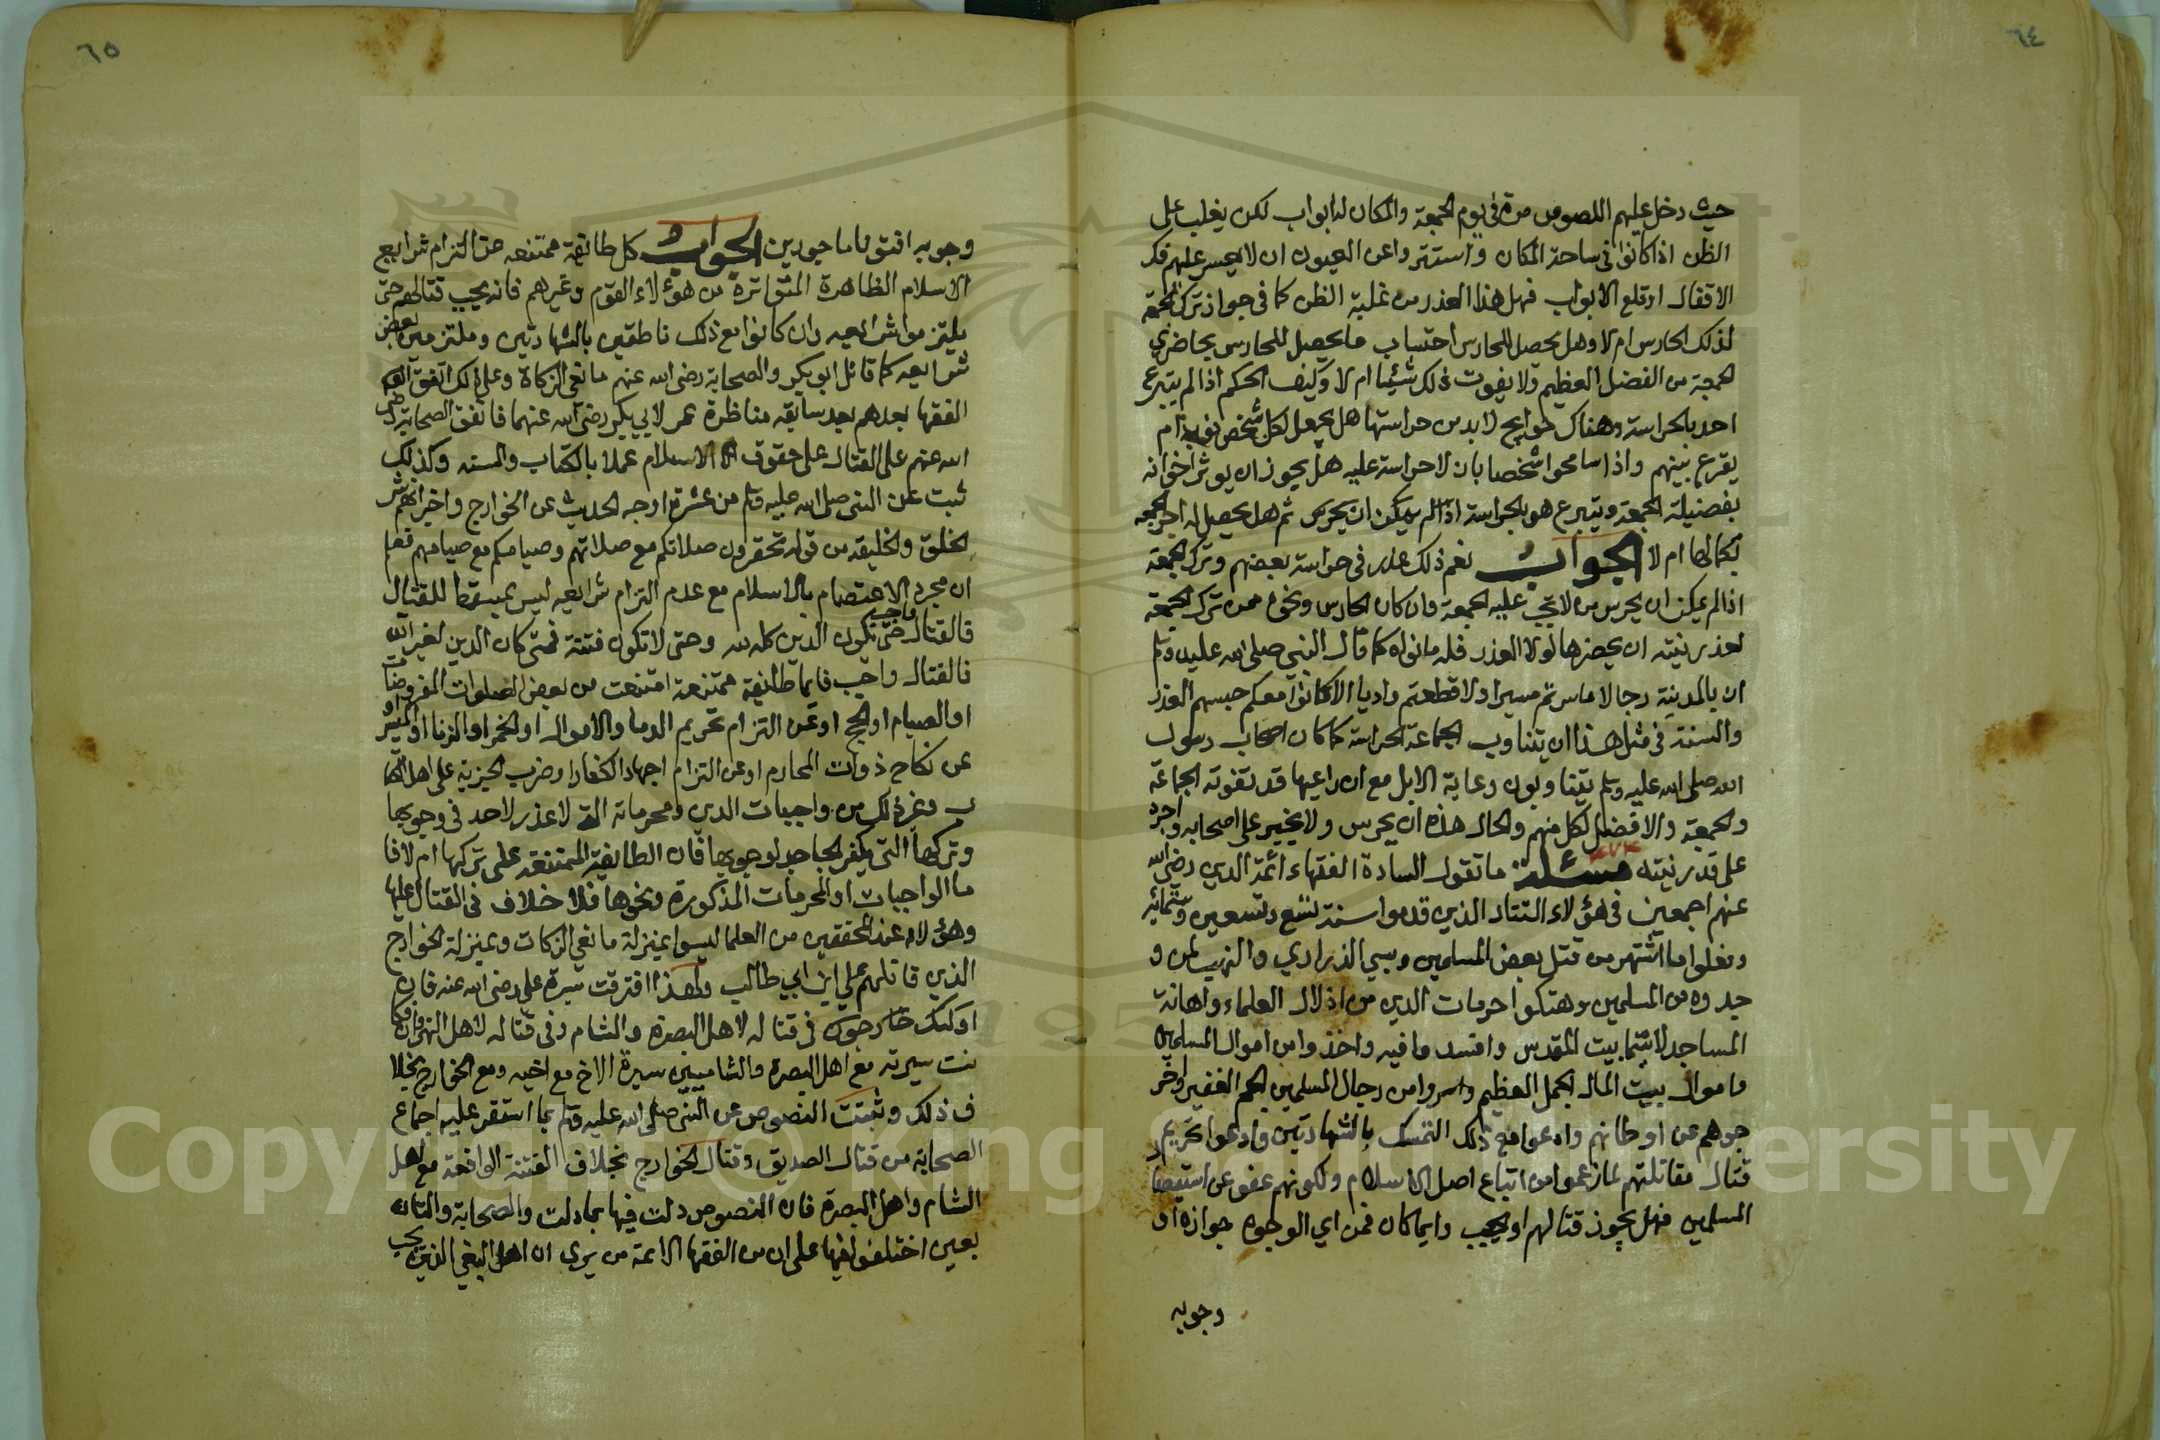 ٦٤
حيث دخل عليهم اللصوص مرة في يوم الجمعة والمكان له ابواب لكن يغلب على
الظن اذا كانوا في ساحة المكان واستتروا عن العيون ان لا يعسر عليهم فك
الاقفال او قلع الابواب فهل هذا العذر من غلبة الظن كاف في جواز ترك الجمعة
لذلك الحارس ام لا وهل يحصل للحارس احتساب ما يحصل للحارس بحاضري
الجمعة من الفضل العظيم ولا يفوت ذلك شيئا ام لا وكيف الحكم اذا لم يتبرع
احد بالحراسة وهناك حوايج لا بد من حراستها هل يجعل لكل شخص نوبة ام
يقرع بينهم واذا سامحوا شخصا بان لا حراسة عليه هل يجوز ان يوثر اخوانه
بفضيلة الجمعة ويتبرع هو بالحراسة اذا لم يمكن ان يحرس ثم هل يحصل له اجر الجمعه
بكمالها ام لا الجواب نعم ذلك عذر في حراسة بعضهم وترك الجمعة
اذا لم يمكن ان يحرس من لا تجب عليه الجمعة وان كان الحارس ونحوه ممن ترك الجمعة
لعذر نيته ان يحضرها لولا العذر فله ما نواه كما قال النبي صلى الله عليه وسلم
ان بالمدينة رجالا ما سرتم مسيرا ولا قطعتم واديا الا كانوا معكم حبسهم العذر
والسنة في مثل هذا ان يتناوب الجماعة الحراسة كما كان اصحاب رسول
الله صلى الله عليه وسلم يتناوبون رعاية الابل مع ان راعيها قد تفوته الجماعة
والجمعة والافضل لكل منهم والحال هذه ان يحرس ولا يخير على اصحابه واجره
على قدر نيته مسئلة ما تقول السادة الفقهاء ائمة الدين رضي الله
عنهم اجمعين في هؤلاء التتار الذين قدموا سنة تسع وتسعين وستمائه
وفعلوا ما اشتهر من قتل بعض المسلمين وسبي الذراري والنهب لمن و
جدوه من المسلمين وهتكوا حرمات الدين من اذلال العلماء واهانة
المساجد لا سيما بيت المقدس وافسد وما فيه واخذوا من اموال المسلمين
واموال بيت المال الحمل العظيم واسروا من رجال المسلمين الجم الغفير واخر
جوهم عن اوطانهم وادعوا مع ذلك التمسك بالشهادتين وادعوا تحريم
قتال مقاتلتهم لما زعموا من اتباع اصل الاسلام ولكونهم عفو عن استيصال
المسلمين فهل يجوز قتالهم او يجب وايما كان فمن اي الوجوه جوازه او
وجوبه
٦٥
وجوبه افتونا ماجورين الجواب كل طائفة ممتنعه عن التزام شرايع
الاسلام الظاهرة المتواترة من هؤلاء القوم وغيرهم فانه يجب قتالهم حتى
يلتزموا شرائعه وان كانوا مع ذلك ناطقين بالشهادتين وملتزمين بعض
شرايعه كما قاتل ابو بكر والصحابة رضي الله عنهم مانعي الزكاة وعلى ذلك اتفق
الفقها بعدهم بعد سابقه مناظرة عمر لابي بكر رضي الله عنهما فاتفق الصحابة رضي
الله عنهم على القتال على حقوق الاسلام عملا بالكتاب والسنه وكذلك
ثبت عن النبي صلى الله عليه وسلم من عشرة اوجه الحديث عن الخوارج واخبر انهم شر
الخلق والخليقه من قوله تحقرون صلاتكم مع صلاتهم وصيامكم مع صيامهم فعلم
ان مجرد الاعتصام بالاسلام مع عدم التزام شرايعه ليس بمسقط للقتال
فالقتال واجب حتى يكون الدين كله لله وحتى لا تكون فتنة فمتى كان الدين لغير الله
فالقتال واجب فايما طائفة ممتنعة امتنعت من بعض الصلوات المفروضات
او الصيام او الحج او عن التزام تحريم الدما والاموال او الخمر او الزنا او الميسر او
عن نكاح ذوات المحارم او عن التزام اجهاد الكفار او ضرب الجزية على اهل الكتا
ب وغير ذلك من واجبات الدين ومحرماته التي لا عذر لاحد في وجوبها
وتركها التي يكفر الجاحد لوجوبها فان الطايفة الممتنعة على تركها ام لا فا
ما الواجبات او المحرمات المذكورة ونحوها فلا خلاف في القتال عليها
وهؤلاء عند المحققين من العلما ليسوا بمنزلة مانعي الزكات وبمنزلة الخوارج
الذين قاتلهم علي ابن ابي طالب ولهذا افترقت سيرة علي رضي الله عنه فان
اولئك خارجون في قتاله لاهل البصرة والشام وفي قتاله لاهل النهروان وكا
نت سيرته مع اهل البصرة والشاميين سيرة الاخ مع اخيه ومع الخوارج بخلا
ف ذلك وثبتت النصوص عن النبي صلى الله عليه وسلم بما استقر عليه اجماع
الصحابة من قتال الصديق وقتال الخوارج بخلاف الفتنة الواقعة مع اهل
الشام واهل البصرة فان النصوص دلت فيها بما دلت والصحابة والتا
بعين اختلفوا فيها على ان من الفقها الائمة من يرى ان اهل البغي الذين يجب